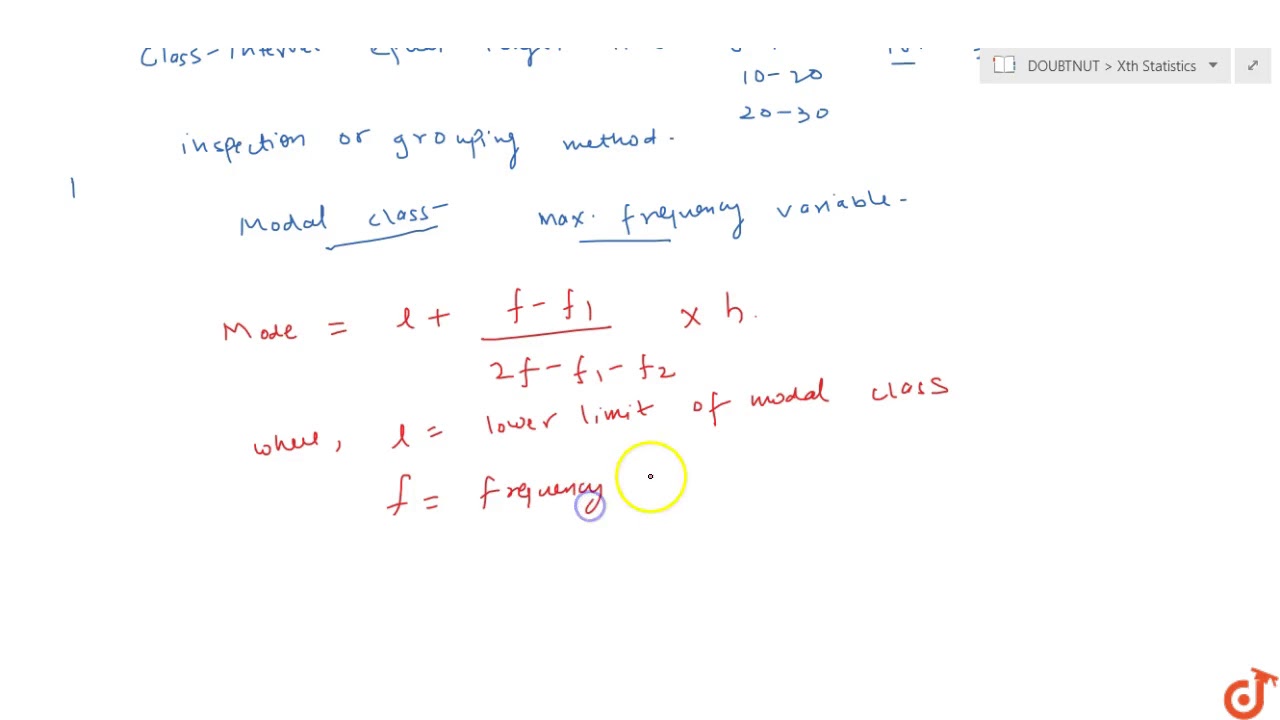 Class-interval equal
DOUBTNUT > Xth Statistics
10-20
20-30
inspection or grouping method.
1
Modal class- max. frequency variable.
Mode = l + f - f1 / 2f - f1 - f2 x h.
where, l = lower limit of modal class
f = frequency